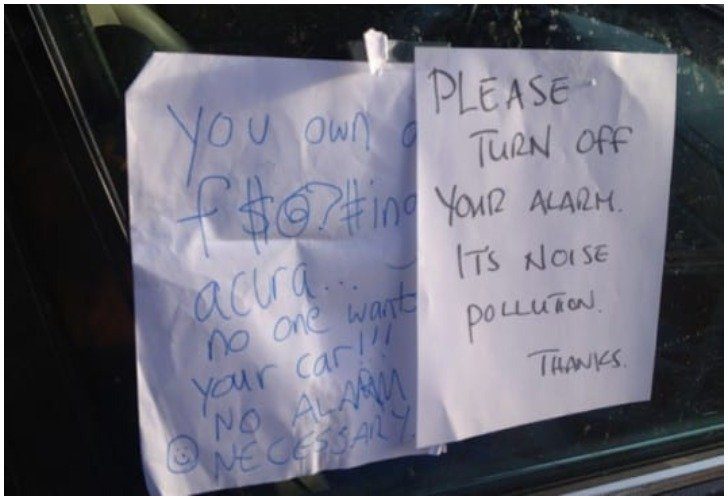 You own a
f$@?#ing
acura...
no one want
your car!!
NO ALARM
NECESSARY.
PLEASE
TURN OFF
YOUR ALARM.
IT'S NOISE
POLLUTION.
THANKS.